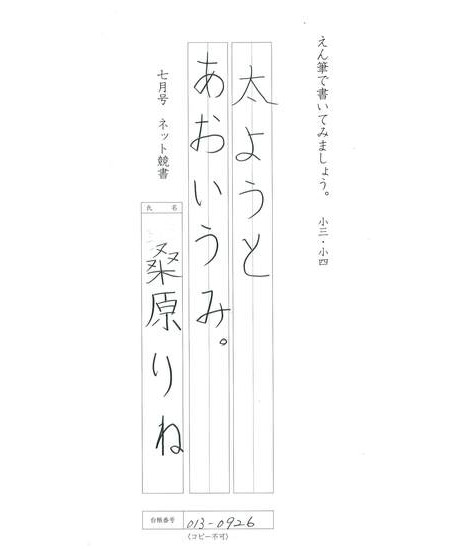 えん筆で書いてみましょう。 小三・小四
太ようと
あおいうみ。
七月号 ネット競書
氏名
桑原りね
台帳番号 013-0926
(コピー不可)